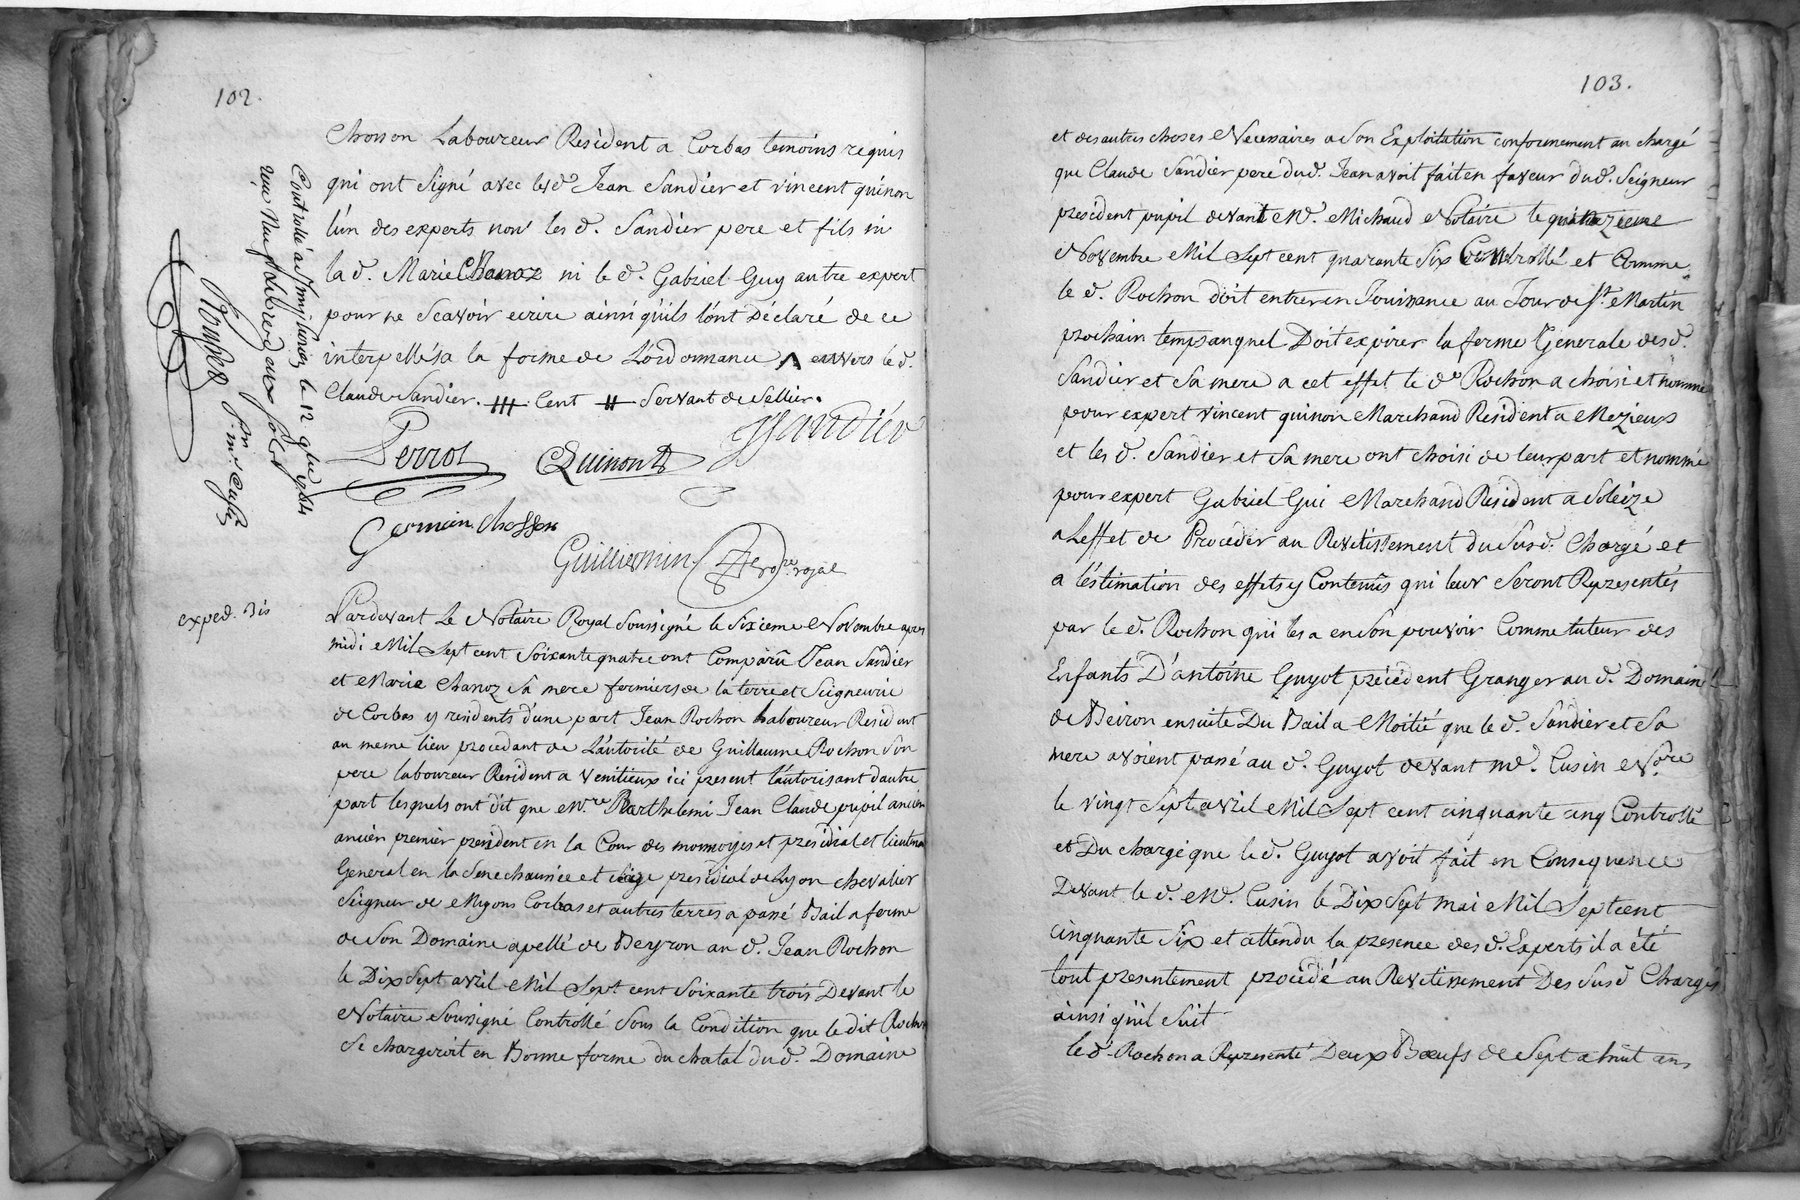 102.
Chosson Laboureur Resident a Corbas temoins requis
qui ont signé avec led. Jean Sandier et vincent quinon
l'un des experts non les d. Sandier pere et fils ni
la d. Marie Chanoz ni le d. Gabriel Guy autre expert
pour ne Scavoir ecrire ainsi qu'ils l'ont Déclaré de ce
interpellés a la forme de L'ordonnance ^ envers le d.
Claude Sandier. Cent Servant de Sellier.
Perrot Quinon Sandier
Germain Chosson
Guilliermin Nore royal
Controllé a le 12 9bre 1764
exped. bis
Pardevant Le Notaire Royal Soussigné le Sixieme Novembre apres
midi Mil Sept cent Soixante quatre ont Comparû Jean Sandier
et Marie Chanoz Sa mere fermiers de la terre et Seigneurie
de Corbas y residents d'une part Jean Rochon Laboureur Resident
au meme lieu procedant de L'autorité de Guillaume Rochon Son
pere laboureur Resident a Venitieux ici present l'autorisant d'autre
part lesquels ont dit que Mre. Barthelemi Jean Claude pupil ancien
ancien premier president en la Cour des monnoyes et presidial et lieutenant
General en la Senechaussée et Siege presidial de Lyon Chevalier
Seigneur de Myons Corbas et autres terres a passé Bail a ferme
de Son Domaine apellé de Beyron au d. Jean Rochon
le Dix Sept avril Mil Sept cent Soixante trois Devant le
Notaire Soussigné Controllé Sous la Condition que le dit Rochon
Se chargeroit en Bonne forme du chatal du d. Domaine
103.
et des autres choses Necessaires a Son Exploitation conformement au chargé
que Claude Sandier pere du d. Jean avoit fait en faveur du d. Seigneur
president pupil devant Me. Michaud Notaire le quinzieme
Novembre Mil Sept cent quarante Six Controllé et Comme
le d. Rochon doit entrer en Jouissance au Jour de St. Martin
prochain temps auquel Doit expirer la ferme Generale des d.
Sandier et Sa mere a cet effet le d. Rochon a choisi et nommé
pour expert vincent quinon Marchand Resident a Mezieux
et les d. Sandier et Sa mere ont choisi de leur part et nommé
pour expert Gabriel Gui Marchand Resident a Soleize
a L'effet de Proceder au Revetissement du Susd. Chargé et
a l'éstimation des effets y Contenûs qui leur Seront Representés
par le d. Rochon qui les a en Son pouvoir Comme tuteur des
Enfants D'antoine Guyot précédent Granger au d. Domaine
de Beiron ensuite Du Bail a Moitié que le d. Sandier et Sa
mere avoient passé au d. Guyot devant Me. Cusin Nore
le vingt Sept avril Mil Sept cent cinquante cinq Controllé
et Du chargé que le d. Guyot avoit fait en Consequence
Devant le d. Me. Cusin le Dix Sept Mai Mil Sept cent
cinquante Six et attendu la presence des d. Experts il a été
tout presentement procédé au Revetissement Des Susd Chargés
ainsi qu'il Suit
le d. Rochon a Representé Deux Bœufs de Sept a huit ans